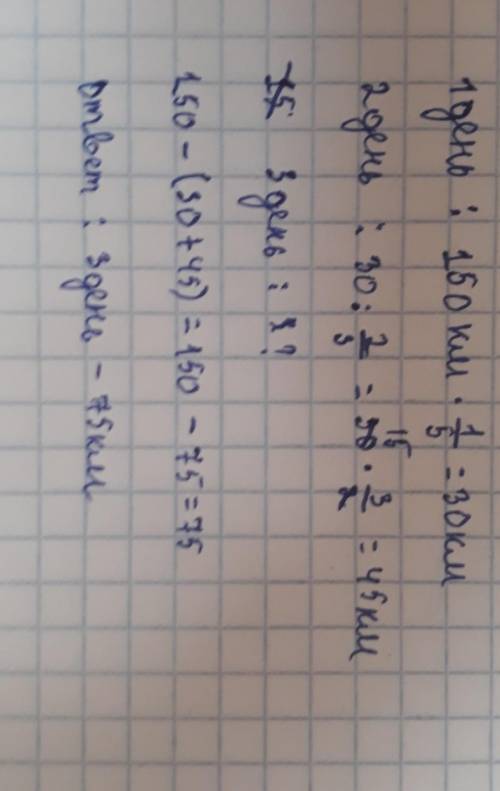 1 день : 150 км · 1/5 = 30 км
2 день : 30 : 2/3 = 30 15 · 3/2 = 45 км
15 3 день : х?
150 - (30 + 45) = 150 - 75 = 75
Ответ : 3 день - 75 км